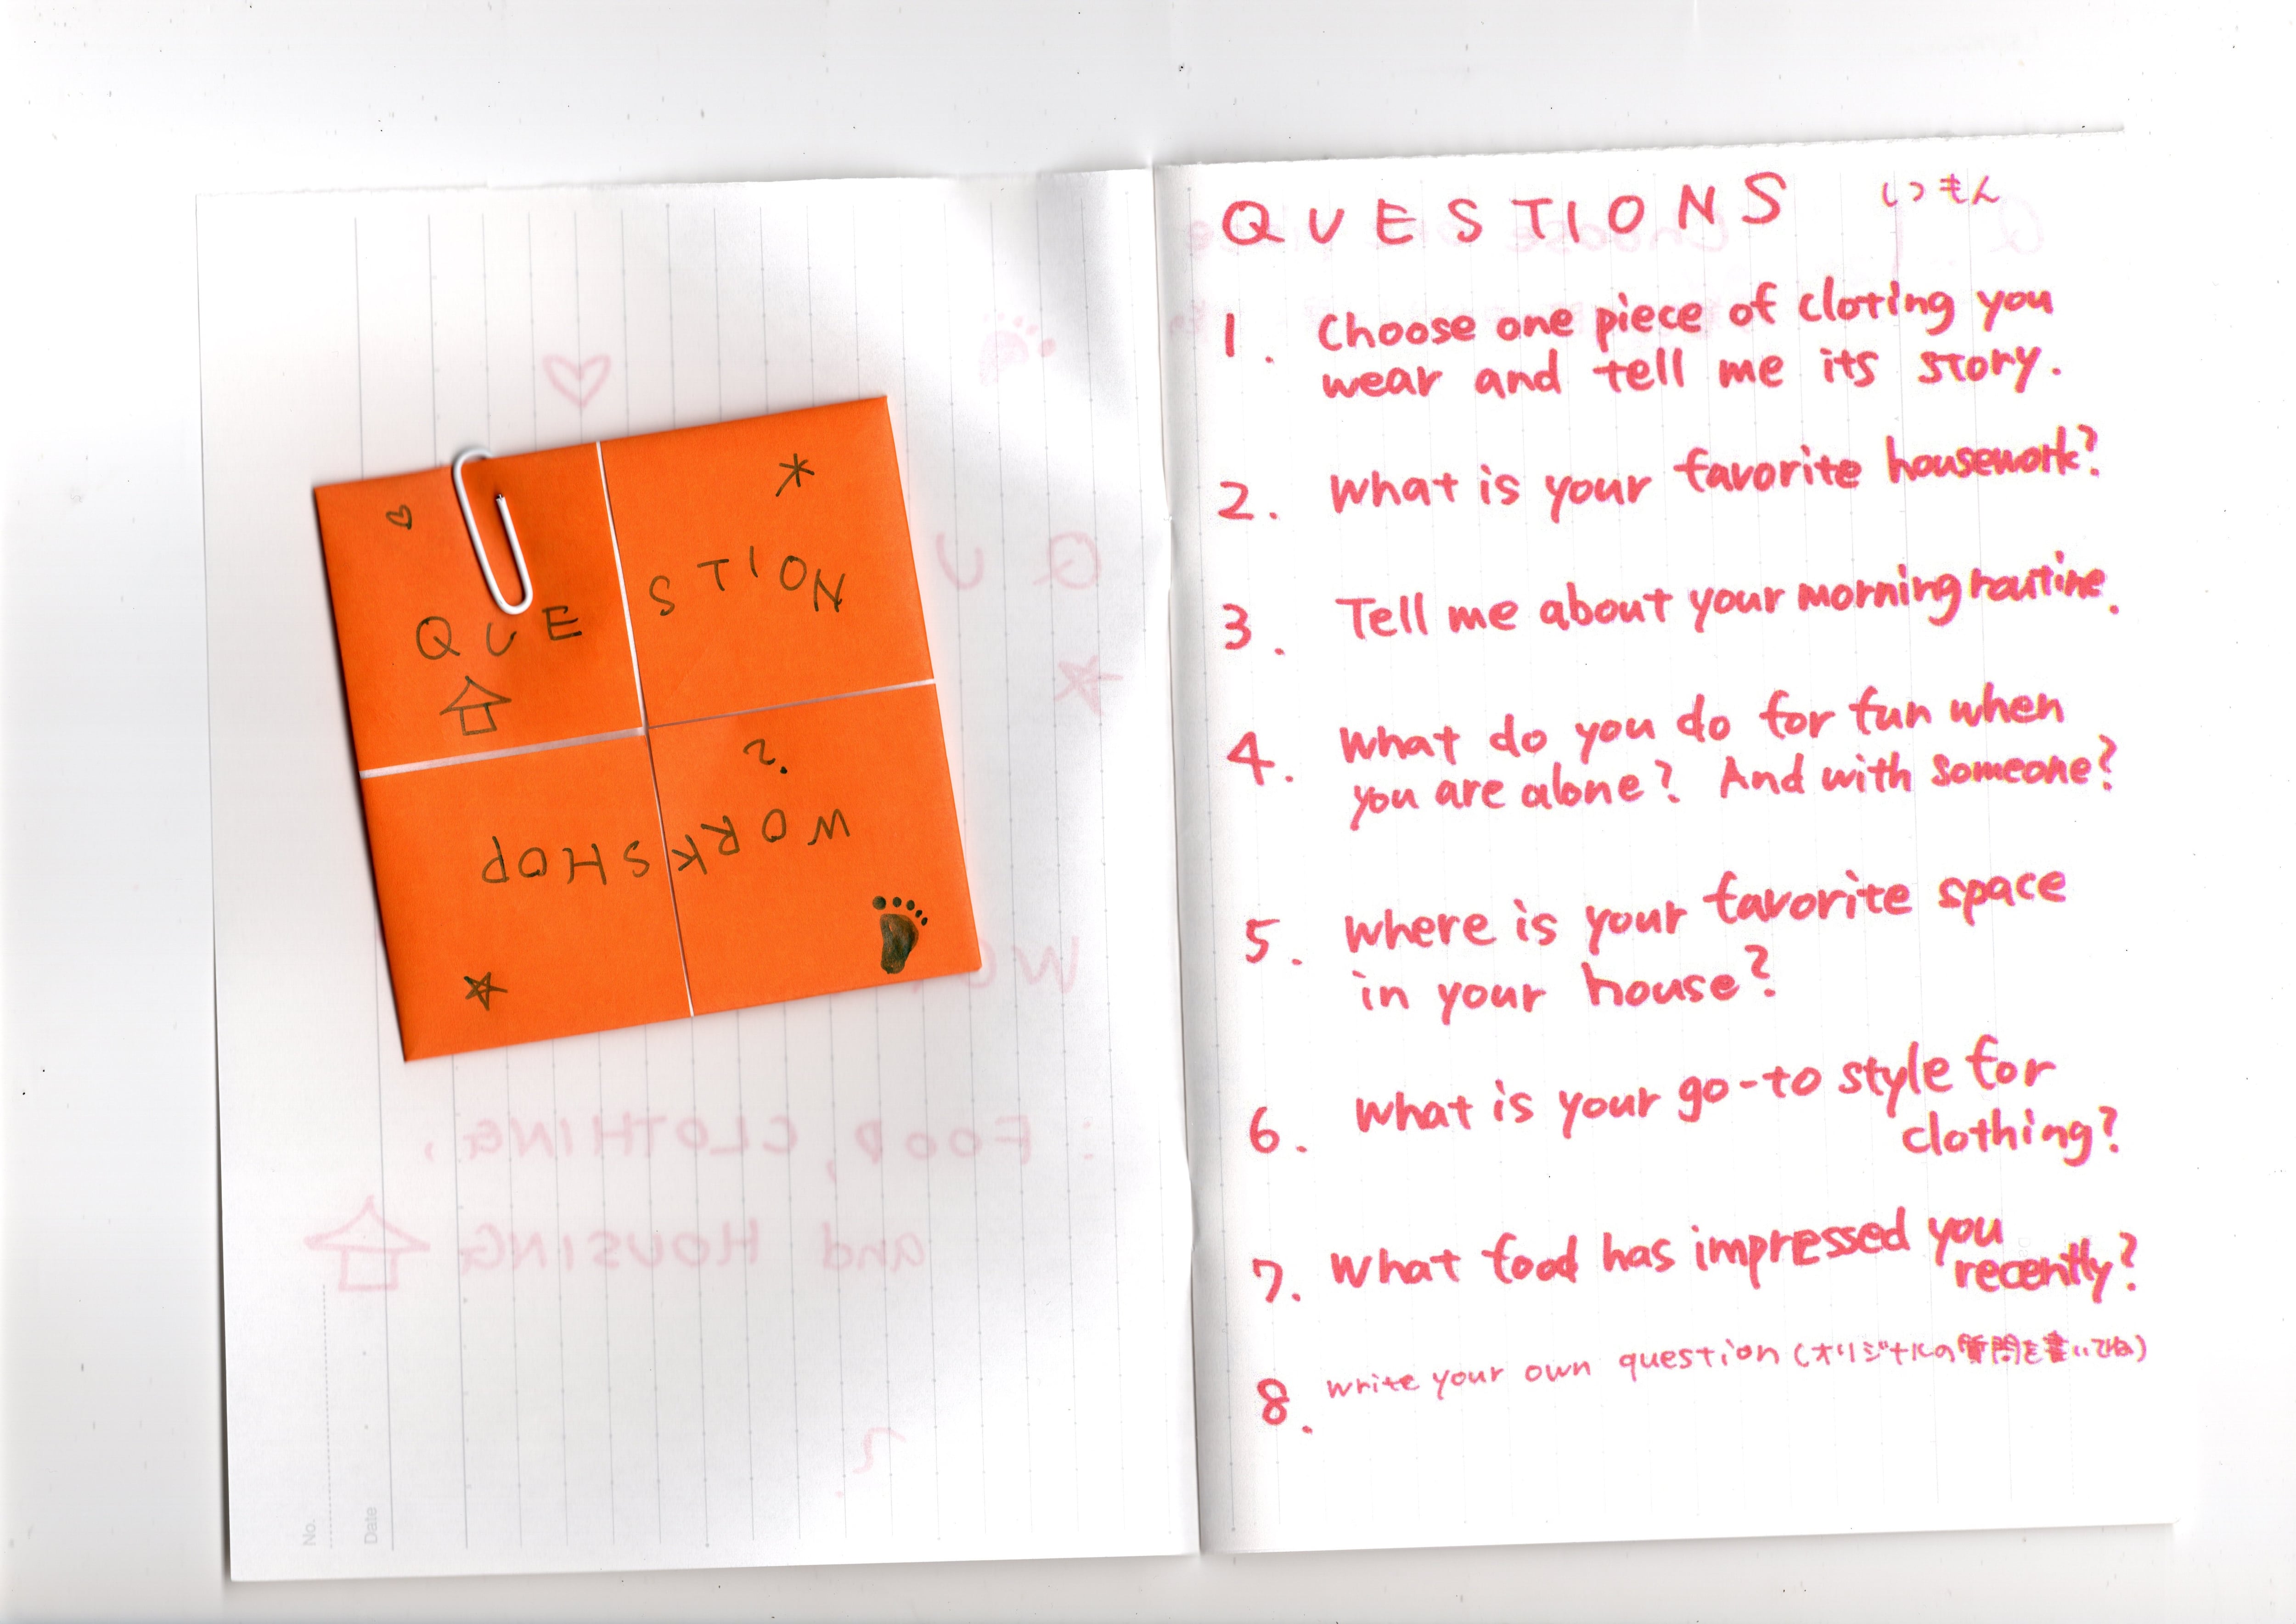 QUE
STION
?
WORKSHOP
No.
Date
QUESTIONS しつもん
1. Choose one piece of cloting you
wear and tell me its story.
2. What is your favorite housework?
3. Tell me about your morning routine.
4. What do you do for fun when
you are alone? And with someone?
5. Where is your favorite space
in your house?
6. What is your go-to style for
clothing?
7. What food has impressed you
recently?
8. write your own question (オリジナルの質問を書いてね)
QU
WO
: FOOD, CLOTHING,
and HOUSING
?